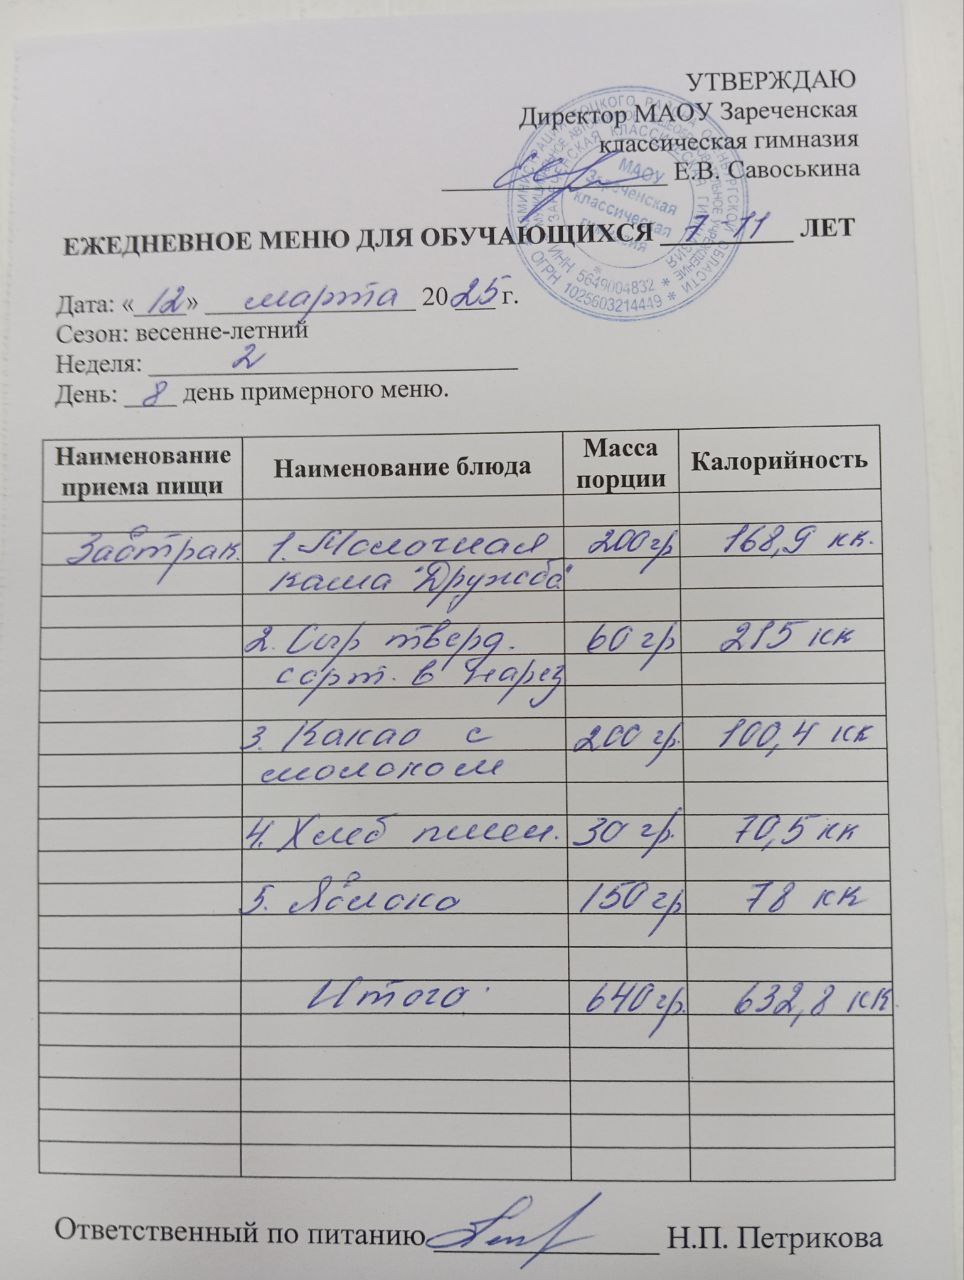 УТВЕРЖДАЮ
Директор МАОУ Зареченская
классическая гимназия
Е.В. Савоськина
АДМИНИСТРАЦИЯ ТОЦКОГО РАЙОНА ОРЕНБУРГСКОЙ ОБЛАСТИ
ОГРН 1025603214449
ИНН 5649004832
МАОУ
Зареченская
классическая
гимназия
ЕЖЕДНЕВНОЕ МЕНЮ ДЛЯ ОБУЧАЮЩИХСЯ 7-11 ЛЕТ
Дата: «12» марта 2025 г.
Сезон: весенне-летний
Неделя: 2
День: 8 день примерного меню.
Наименование приема пищи Наименование блюда Масса порции Калорийность
Завтрак. 1. Молочная 200 гр 168,9 кк.
каша "Дружба"
2. Сыр тверд. 60 гр 215 кк
сорт. в нарез
3. Какао с 200 гр. 100,4 кк
молоком
4. Хлеб пшен. 30 гр. 70,5 кк
5. Яблоко 150 гр 78 кк
Итого 640 гр. 632,8 кк
Ответственный по питанию Н.П. Петрикова